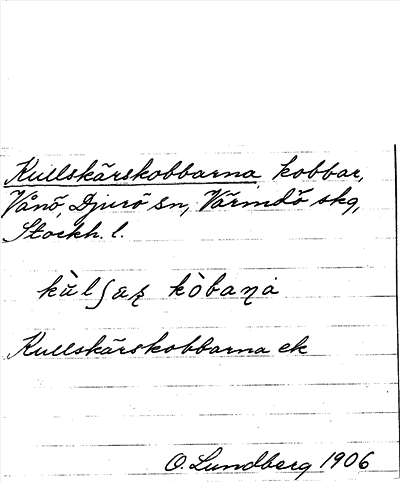 Kullskärskobbarna, kobbar,
Vånö, Djurö sn, Värmdö skg,
Stockh. l.
kùlʃæʐ kòbaɳa
Kullskärskobbarna ek
O. Lundberg 1906